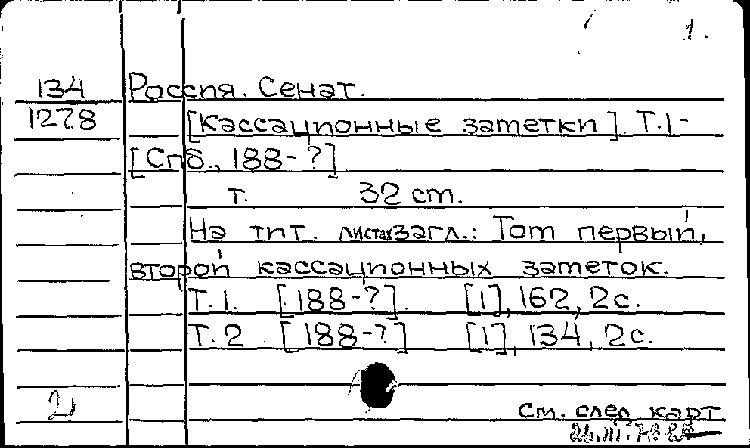 1.
134 Россия. Сенат.
1278 [Кассационные заметки]. Т.1-
[Спб., 188-?]
т. 32 cm.
На тит. листах загл.: Том первый,
второй кассационных заметок.
Т.1. [188-?]. [1], 162, 2с.
Т.2 [188-?] [1], 134, 2с.
См. след карт